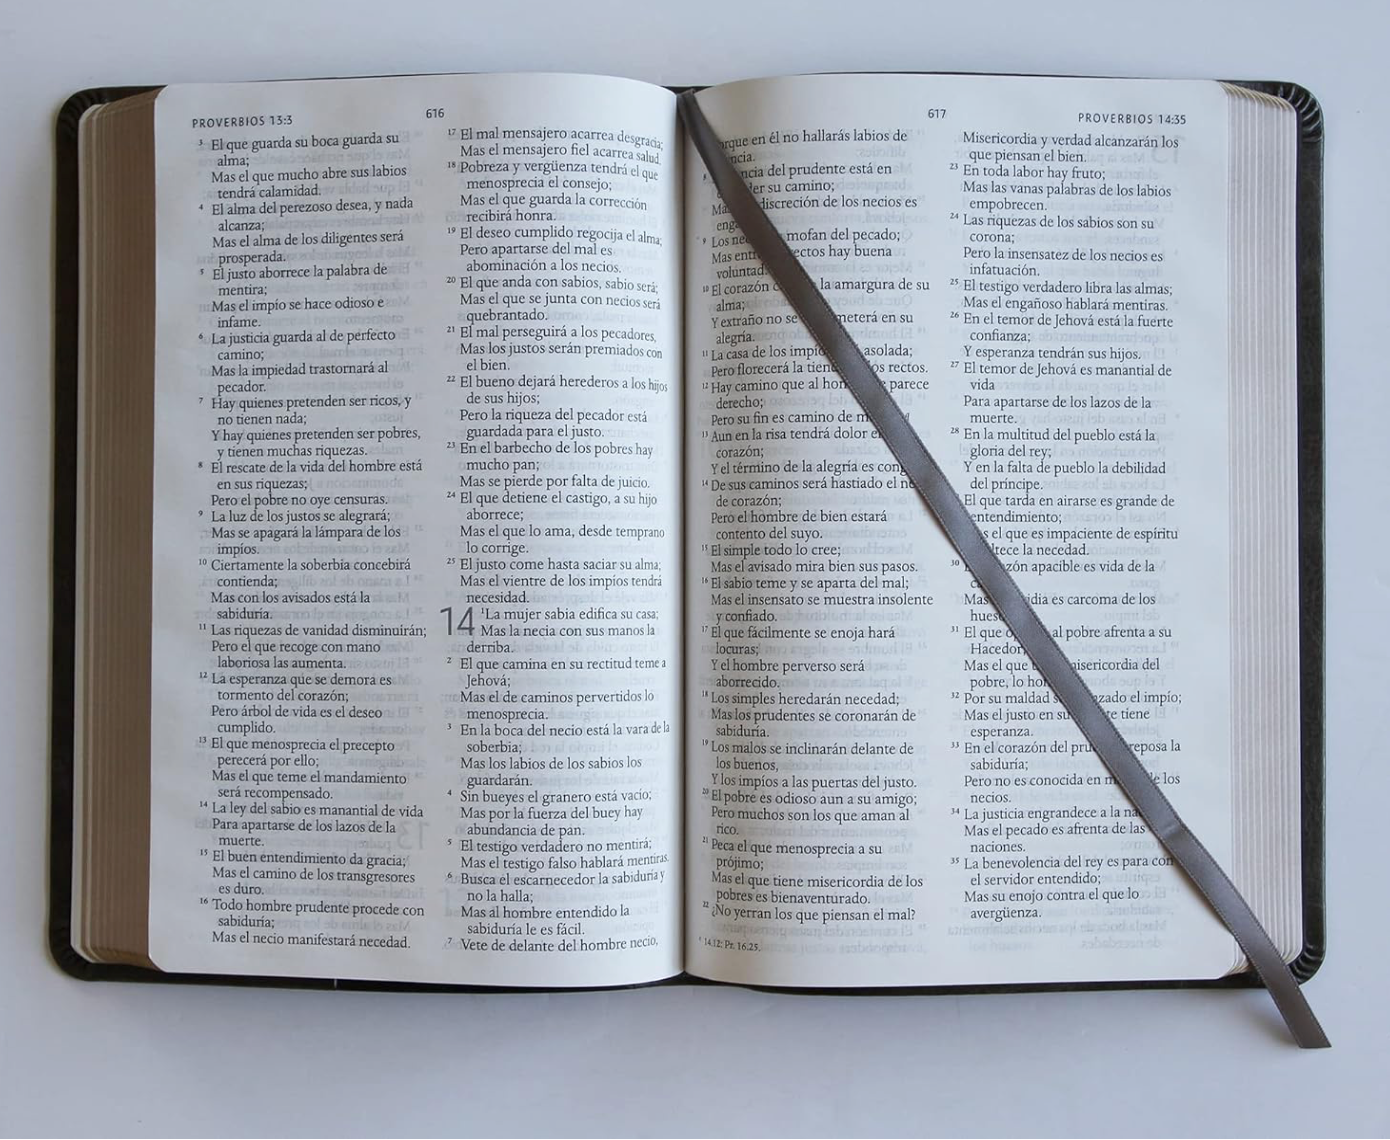 PROVERBIOS 13:3
616
3 El que guarda su boca guarda su
alma;
Mas el que mucho abre sus labios
tendrá calamidad.
4 El alma del perezoso desea, y nada
alcanza;
Mas el alma de los diligentes será
prosperada.
5 El justo aborrece la palabra de
mentira;
Mas el impío se hace odioso e
infame.
6 La justicia guarda al de perfecto
camino;
Mas la impiedad trastornará al
pecador.
7 Hay quienes pretenden ser ricos, y
no tienen nada;
Y hay quienes pretenden ser pobres,
y tienen muchas riquezas.
8 El rescate de la vida del hombre está
en sus riquezas;
Pero el pobre no oye censuras.
9 La luz de los justos se alegrará;
Mas se apagará la lámpara de los
impíos.
10 Ciertamente la soberbia concebirá
contienda;
Mas con los avisados está la
sabiduría.
11 Las riquezas de vanidad disminuirán;
Pero el que recoge con mano
laboriosa las aumenta.
12 La esperanza que se demora es
tormento del corazón;
Pero árbol de vida es el deseo
cumplido.
13 El que menosprecia el precepto
perecerá por ello;
Mas el que teme el mandamiento
será recompensado.
14 La ley del sabio es manantial de vida
Para apartarse de los lazos de la
muerte.
15 El buen entendimiento da gracia;
Mas el camino de los transgresores
es duro.
16 Todo hombre prudente procede con
sabiduría;
Mas el necio manifestará necedad.
17 El mal mensajero acarrea desgracia;
Mas el mensajero fiel acarrea salud.
18 Pobreza y vergüenza tendrá el que
menosprecia el consejo;
Mas el que guarda la corrección
recibirá honra.
19 El deseo cumplido regocija el alma;
Pero apartarse del mal es
abominación a los necios.
20 El que anda con sabios, sabio será;
Mas el que se junta con necios será
quebrantado.
21 El mal perseguirá a los pecadores,
Mas los justos serán premiados con
el bien.
22 El bueno dejará herederos a los hijos
de sus hijos;
Pero la riqueza del pecador está
guardada para el justo.
23 En el barbecho de los pobres hay
mucho pan;
Mas se pierde por falta de juicio.
24 El que detiene el castigo, a su hijo
aborrece;
Mas el que lo ama, desde temprano
lo corrige.
25 El justo come hasta saciar su alma;
Mas el vientre de los impíos tendrá
necesidad.
14 1 La mujer sabia edifica su casa;
Mas la necia con sus manos la
derriba.
2 El que camina en su rectitud teme a
Jehová;
Mas el de caminos pervertidos lo
menosprecia.
3 En la boca del necio está la vara de la
soberbia;
Mas los labios de los sabios los
guardarán.
4 Sin bueyes el granero está vacío;
Mas por la fuerza del buey hay
abundancia de pan.
5 El testigo verdadero no mentirá;
Mas el testigo falso hablará mentiras.
6 Busca el escarnecedor la sabiduría y
no la halla;
Mas al hombre entendido la
sabiduría le es fácil.
7 Vete de delante del hombre necio,
617
PROVERBIOS 14:35
en él no hallarás labios de
8 del prudente está en
su camino;
discreción de los necios es
9 Los mofan del pecado;
Mas hay buena
voluntad.
10 El corazón la amargura de su
alma;
Y extraño no se en su
alegría.
11 La casa de los asolada;
Pero florecerá la rectos.
12 Hay camino que al parece
derecho;
Pero su fin es camino de
13 Aun en la risa tendrá dolor
corazón;
Y el término de la alegría es
14 De sus caminos será hastiado el
de corazón;
Pero el hombre de bien estará
contento del suyo.
15 El simple todo lo cree;
Mas el avisado mira bien sus pasos.
16 El sabio teme y se aparta del mal;
Mas el insensato se muestra insolente
y confiado.
17 El que fácilmente se enoja hará
locuras;
Y el hombre perverso será
aborrecido.
18 Los simples heredarán necedad;
Mas los prudentes se coronarán de
sabiduría.
19 Los malos se inclinarán delante de
los buenos,
Y los impíos a las puertas del justo.
20 El pobre es odioso aun a su amigo;
Pero muchos son los que aman al
rico.
21 Peca el que menosprecia a su
prójimo;
Mas el que tiene misericordia de los
pobres es bienaventurado.
22 ¿No yerran los que piensan el mal?
14.12: Pr. 16.25.
Misericordia y verdad alcanzarán los
que piensan el bien.
23 En toda labor hay fruto;
Mas las vanas palabras de los labios
empobrecen.
24 Las riquezas de los sabios son su
corona;
Pero la insensatez de los necios es
infatuación.
25 El testigo verdadero libra las almas;
Mas el engañoso hablará mentiras.
26 En el temor de Jehová está la fuerte
confianza;
Y esperanza tendrán sus hijos.
27 El temor de Jehová es manantial de
vida
Para apartarse de los lazos de la
muerte.
28 En la multitud del pueblo está la
gloria del rey;
Y en la falta de pueblo la debilidad
del príncipe.
El que tarda en airarse es grande de
entendimiento;
el que es impaciente de espíritu
la necedad.
30 apacible es vida de la
Mas es carcoma de los
31 El que al pobre afrenta a su
Hacedor;
Mas el que misericordia del
pobre, lo
32 Por su maldad el impío;
Mas el justo en su tiene
esperanza.
33 En el corazón del reposa la
sabiduría;
Pero no es conocida en los
necios.
34 La justicia engrandece a la
Mas el pecado es afrenta de las
naciones.
35 La benevolencia del rey es para con
el servidor entendido;
Mas su enojo contra el que lo
avergüenza.